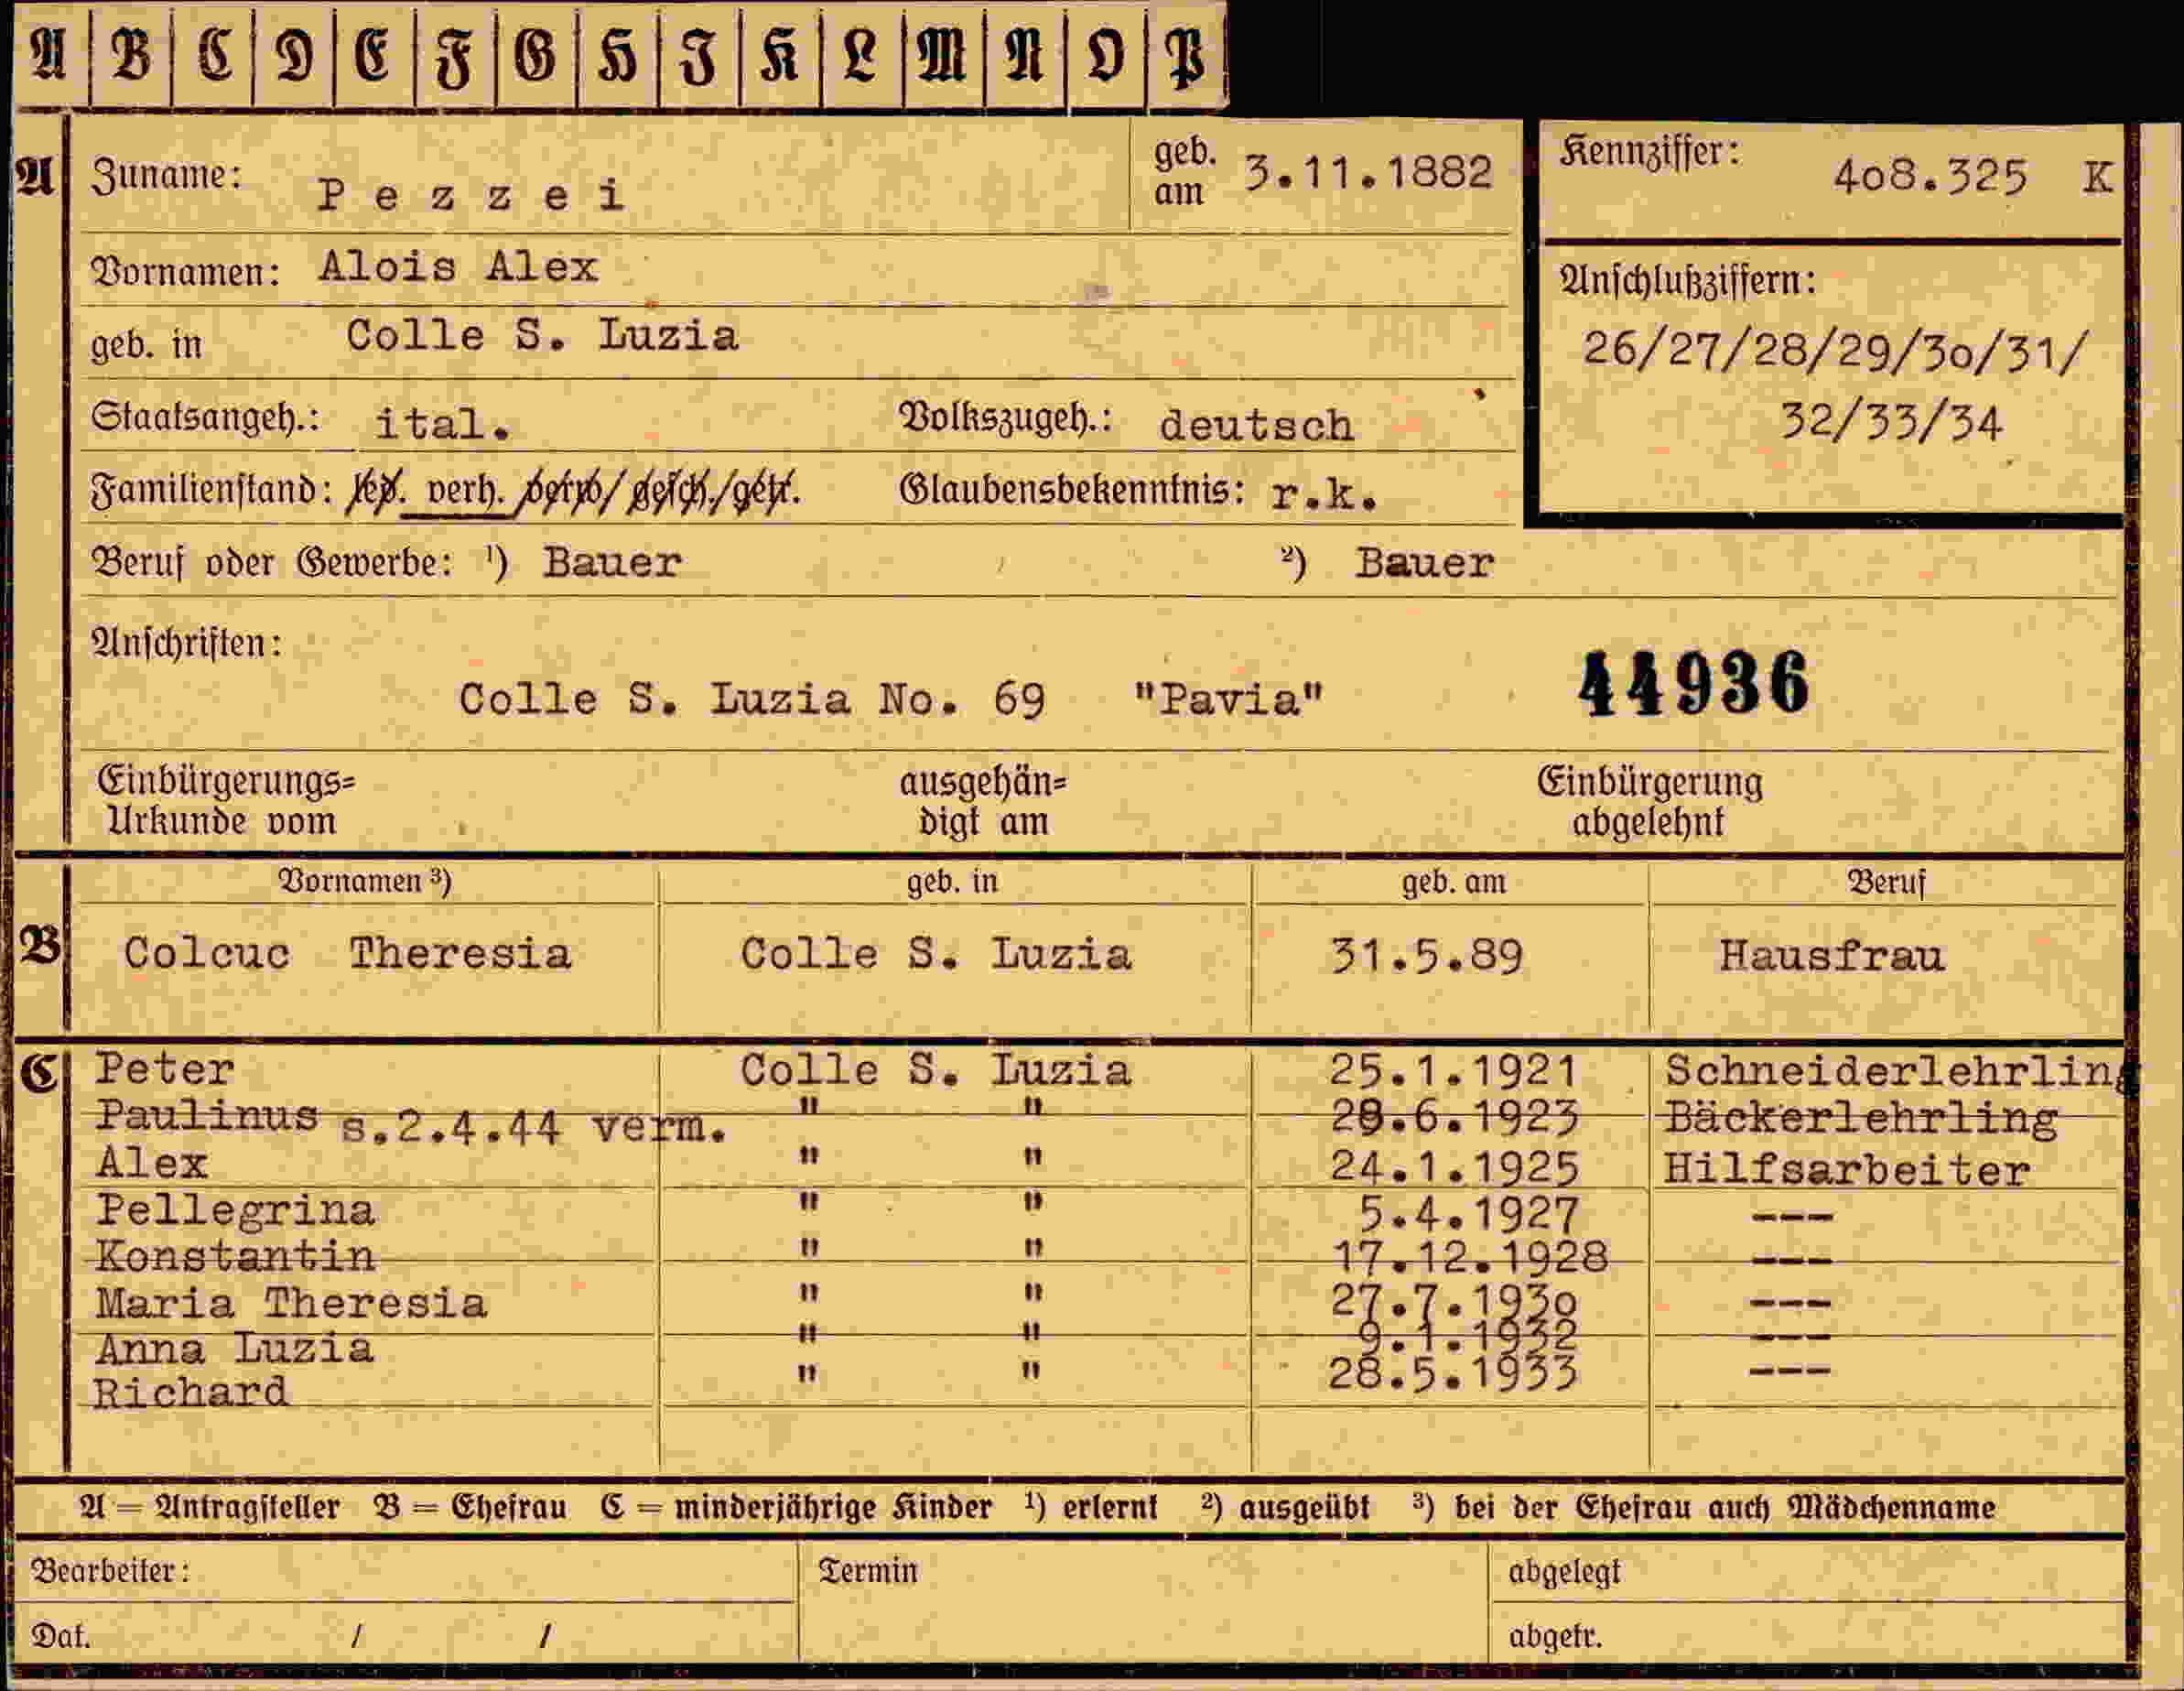 A B C D E F G H I K L M N O P
A Zuname: Pezzei geb. am 3.11.1882
Kennziffer: 408.325 K
Vornamen: Alois Alex
Anschlußziffern:
26/27/28/29/30/31/
32/33/34
geb. in Colle S. Luzia
Staatsangeh.: ital. Volkszugeh.: deutsch
Familienstand: led. verh. verw/gesch./getr. Glaubensbekenntnis: r.k.
Beruf oder Gewerbe: ¹) Bauer ²) Bauer
Anschriften:
Colle S. Luzia No. 69 "Pavia" 44936
Einbürgerungs= ausgehän= Einbürgerung
Urkunde vom digt am abgelehnt
Vornamen ³) geb. in geb. am Beruf
B Colcuc Theresia Colle S. Luzia 31.5.89 Hausfrau
C Peter Colle S. Luzia 25.1.1921 Schneiderlehrling
Paulinus s.2.4.44 verm. " " 28.6.1923 Bäckerlehrling
Alex " " 24.1.1925 Hilfsarbeiter
Pellegrina " " 5.4.1927 ---
Konstantin " " 17.12.1928 ---
Maria Theresia " " 27.7.1930 ---
Anna Luzia " " 9.1.1932 ---
Richard " " 28.5.1933 ---
A = Antragsteller B = Ehefrau C = minderjährige Kinder ¹) erlernt ²) ausgeübt ³) bei der Ehefrau auch Mädchenname
Bearbeiter: Termin abgelegt
Dat. / / abgetr.